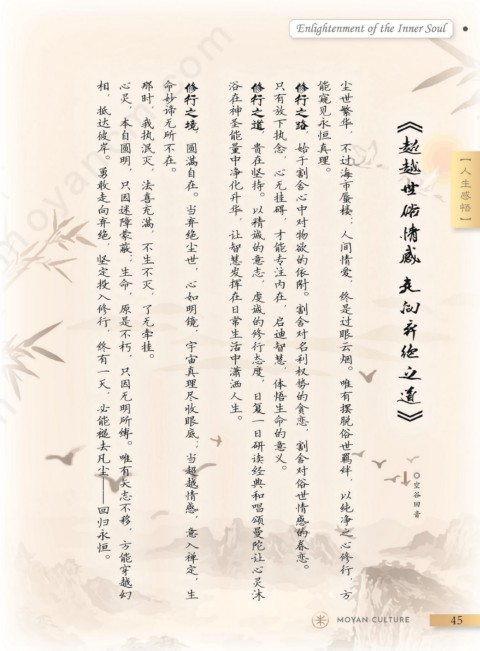 Enlightenment of the Inner Soul
【人生感悟】
《超越世俗情感 走向弃绝之道》
◎空谷回音
尘世繁华，不过海市蜃楼，人间情爱，终是过眼云烟。唯有摆脱俗世羁绊，以纯净之心修行，方
能窥见永恒真理。
修行之路，始于割舍心中对物欲的依附。割舍对名利权势的贪恋，割舍对俗世情感的眷恋。
只有放下执念，心无挂碍，才能专注内在，启迪智慧，体悟生命的意义。
修行之道，贵在坚持。以精诚的意志，虔诚的修行态度，日复一日研读经典和唱颂曼陀让心灵沐
浴在神圣能量中净化升华，让智慧发挥在日常生活中潇洒人生。
修行之境，圆满自在。当弃绝尘世，心如明镜，宇宙真理尽收眼底；当超越情感，意入禅定，生
命妙谛无所不在。
那时，我执泯灭，法喜充满，不生不灭，了无牵挂。
心灵，本自圆明，只因迷障蒙蔽；生命，原是不朽，只因无明所缚。唯有矢志不移，方能穿越幻
相，抵达彼岸。勇敢走向弃绝，坚定投入修行，终有一天，必能褪去凡尘——回归永恒。
MOYAN CULTURE
45
moyan.com